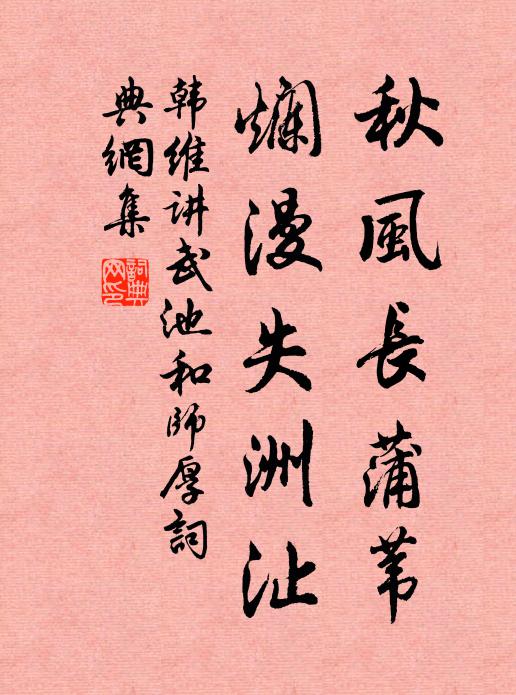 秋風長蒲苇
爛漫失洲沚
韩维讲武池和師厚詞
典網集
詞典網印